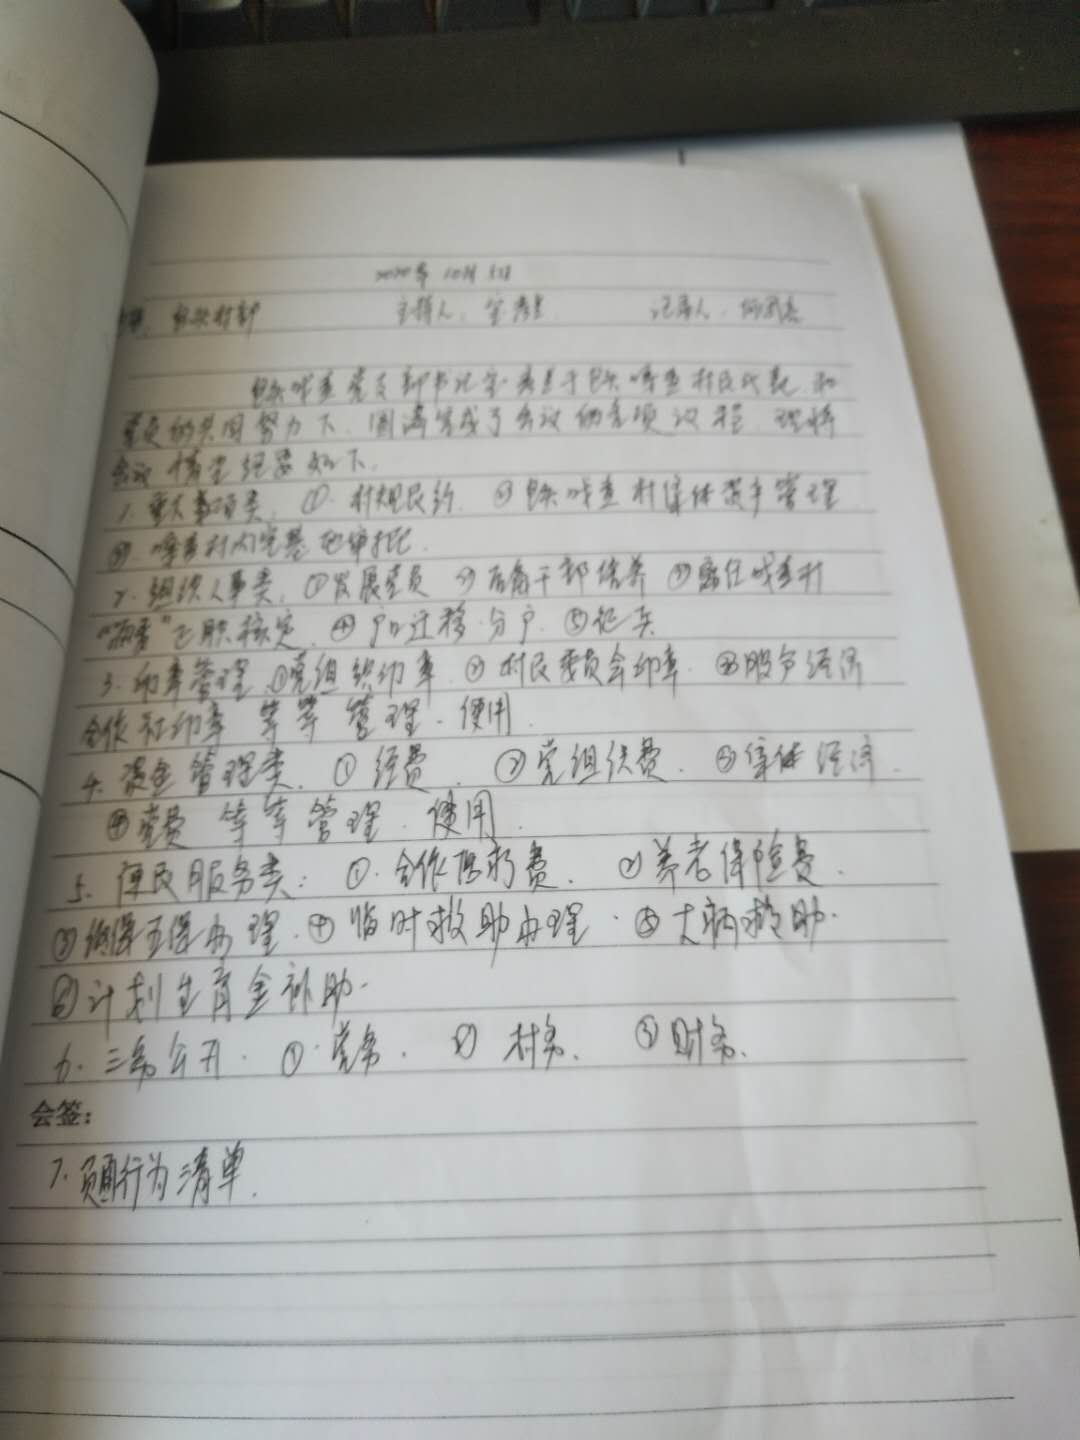 2020年10月
村部 主持人: 记录人:
党支部书记 村民代表 和
党员的共同努力下.圆满完成了会议的各项议程.现将
会议情况纪要如下.
1.重大事项类. ①.村规民约. ② 村集体资产管理
③. 村内宅基地审批.
2.组织人事类. ①发展党员 ②后备干部培养 ③
④户口迁移.分户. ⑤征兵
3.印章管理.①党组织印章.②村民委员会印章.③股份经济
合作社印章 等等管理.使用.
4.资金管理类. ①经费. ②党组织费. ③集体经济.
④党费 等等管理.使用.
5.便民服务类: ①.合作医疗费. ②养老保险费.
③低保五保办理.④临时救助办理.⑤大病救助.
⑥计划生育金补助.
6.三务公开. ①.党务. ② 村务. ③财务.
会签:
7.负面行为清单.